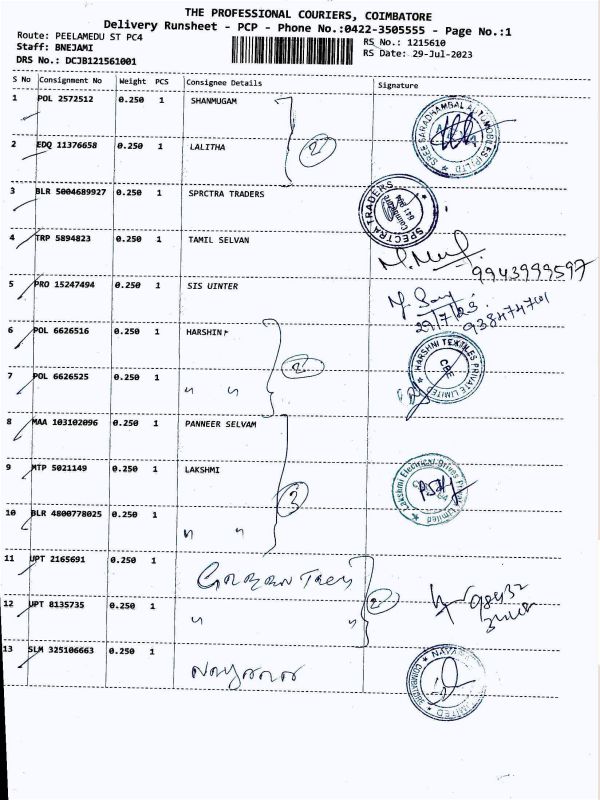 THE PROFESSIONAL COURIERS, COIMBATORE
Delivery Runsheet - PCP - Phone No.:0422-3505555 - Page No.:1
Route: PEELAMEDU ST PC4
Staff: BNEJAMI
DRS No.: DCJB121561001
RS No.: 1215610
RS Date: 29-Jul-2023
S No Consignment No Weight PCS Consignee Details Signature
1 POL 2572512 0.250 1 SHANMUGAM
SREE SARADHAMBAL AUTOMOBILES (P) LTD
2 EDQ 11376658 0.250 1 LALITHA
2
3 BLR 5004689927 0.250 1 SPRCTRA TRADERS
SPECTRA TRADERS
Coimbatore
641 004
4 TRP 5894823 0.250 1 TAMIL SELVAN
9943999597
5 PRO 15247494 0.250 1 SIS UINTER
29/7/23
6 POL 6626516 0.250 1 HARSHINI
HARSHNI TEXTILES PRIVATE LIMITED
CBE
2
7 POL 6626525 0.250 1 " "
8 MAA 103102096 0.250 1 PANNEER SELVAM
9 MTP 5021149 0.250 1 LAKSHMI
Lakshmi Electrical Drives Private Limited
3
10 BLR 4800778025 0.250 1 " "
11 UPT 2165691 0.250 1
2
12 UPT 8135735 0.250 1 " "
13 SLM 325106663 0.250 1